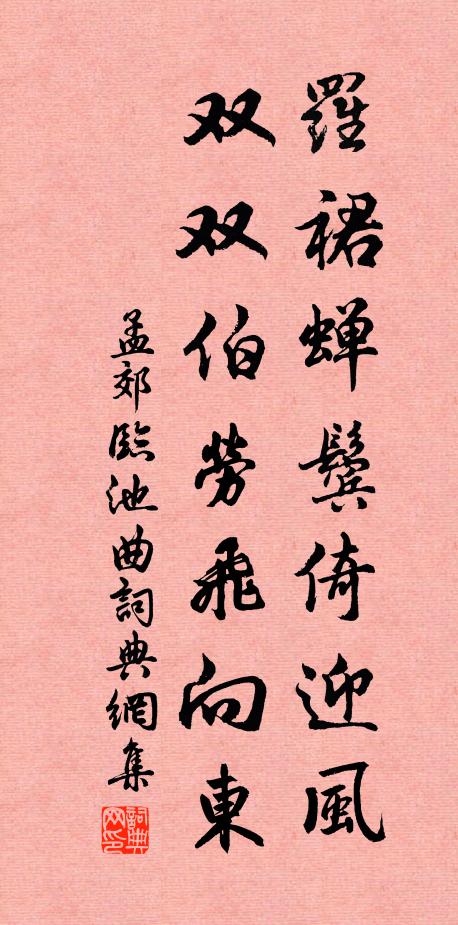 羅裙蝉鬓倚迎風
双双伯勞飛向東
孟郊臨池曲詞典網集
詞典网印